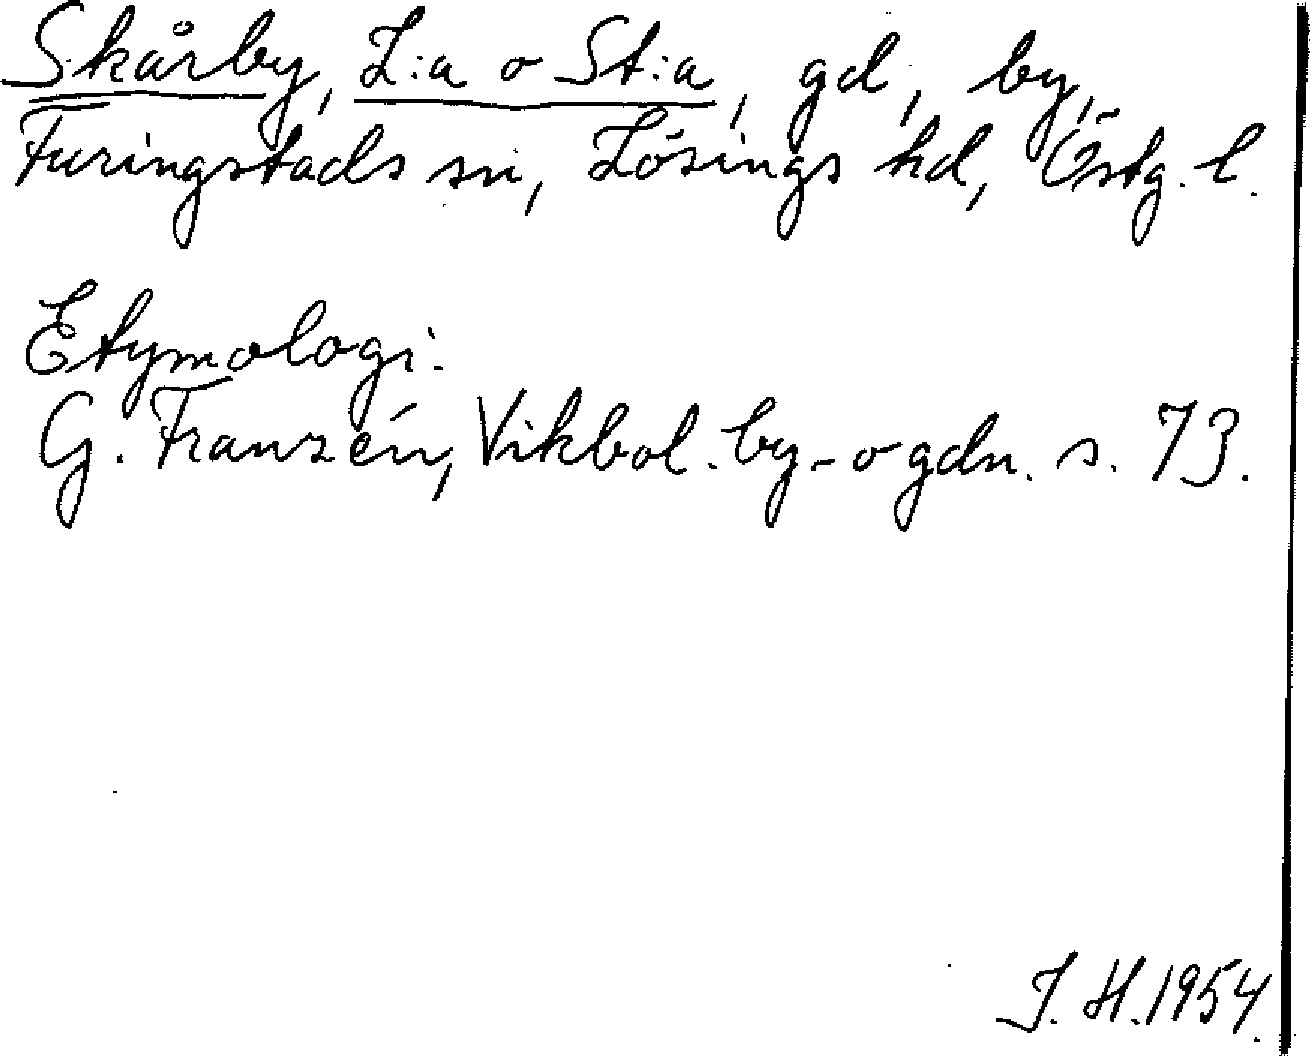 Skårby, L:a o St:a, gd, by,
Furingstads sn, Lösings hd, Östg. l.
Etymologi.
G. Franzén, Vikbol. by- o gdn. s. 73.
J. H. 1954.